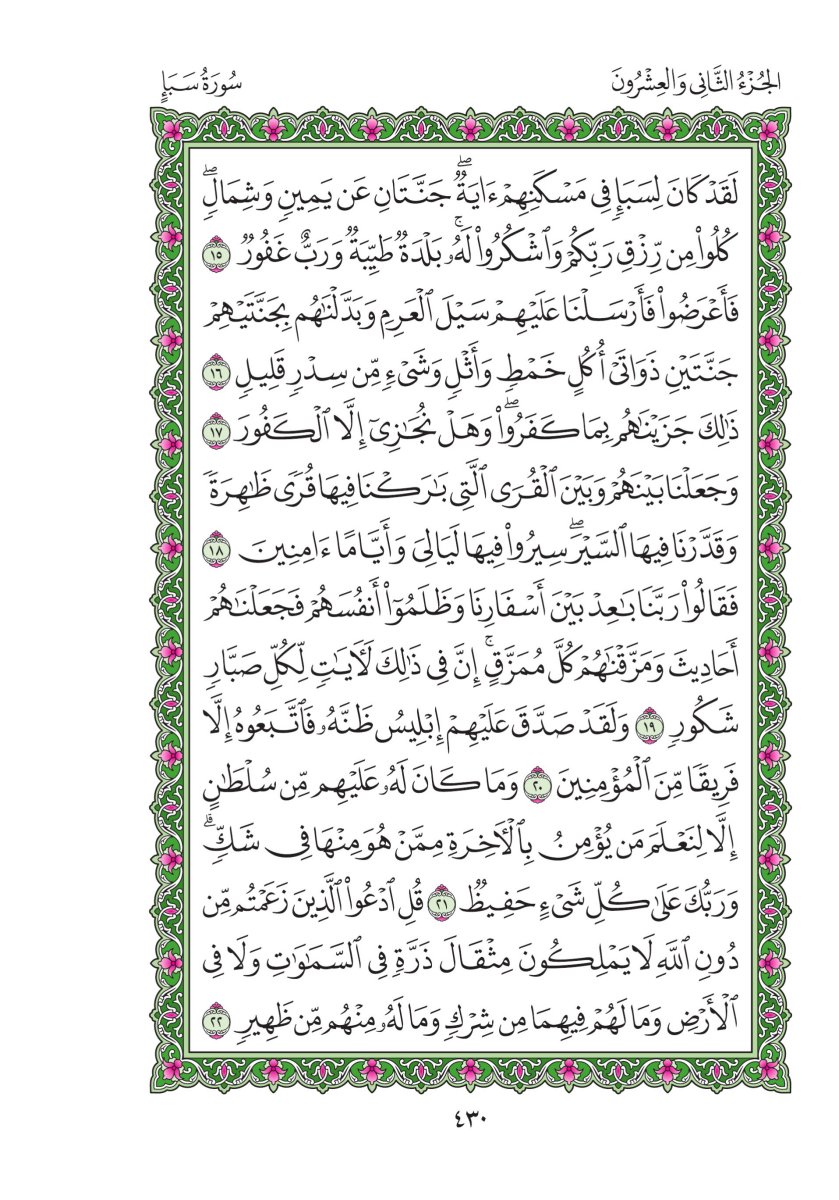 الجُزْءُ الثَّانِي وَالعِشْرُونَ
سُورَةُ سَبَإٍ
لَقَدْ كَانَ لِسَبَإٍ فِي مَسْكَنِهِمْ ءَايَةٌۖ جَنَّتَانِ عَن يَمِينٍ وَشِمَالٍۖ
كُلُوا۟ مِن رِّزْقِ رَبِّكُمْ وَٱشْكُرُوا۟ لَهُۥۚ بَلْدَةٌ طَيِّبَةٌ وَرَبٌّ غَفُورٌ ١٥
فَأَعْرَضُوا۟ فَأَرْسَلْنَا عَلَيْهِمْ سَيْلَ ٱلْعَرِمِ وَبَدَّلْنَٰهُم بِجَنَّتَيْهِمْ
جَنَّتَيْنِ ذَوَاتَىْ أُكُلٍ خَمْطٍ وَأَثْلٍ وَشَىْءٍ مِّن سِدْرٍ قَلِيلٍ ١٦
ذَٰلِكَ جَزَيْنَٰهُم بِمَا كَفَرُوا۟ۖ وَهَلْ نُجَٰزِىٓ إِلَّا ٱلْكَفُورَ ١٧
وَجَعَلْنَا بَيْنَهُمْ وَبَيْنَ ٱلْقُرَى ٱلَّتِى بَٰرَكْنَا فِيهَا قُرًى ظَٰهِرَةً
وَقَدَّرْنَا فِيهَا ٱلسَّيْرَۖ سِيرُوا۟ فِيهَا لَيَالِىَ وَأَيَّامًا ءَامِنِينَ ١٨
فَقَالُوا۟ رَبَّنَا بَٰعِدْ بَيْنَ أَسْفَارِنَا وَظَلَمُوٓا۟ أَنفُسَهُمْ فَجَعَلْنَٰهُمْ
أَحَادِيثَ وَمَزَّقْنَٰهُمْ كُلَّ مُمَزَّقٍۚ إِنَّ فِى ذَٰلِكَ لَءَايَٰتٍ لِّكُلِّ صَبَّارٍ
شَكُورٍ ١٩ وَلَقَدْ صَدَّقَ عَلَيْهِمْ إِبْلِيسُ ظَنَّهُۥ فَٱتَّبَعُوهُ إِلَّا
فَرِيقًا مِّنَ ٱلْمُؤْمِنِينَ ٢٠ وَمَا كَانَ لَهُۥ عَلَيْهِم مِّن سُلْطَٰنٍ
إِلَّا لِنَعْلَمَ مَن يُؤْمِنُ بِٱلْءَاخِرَةِ مِمَّنْ هُوَ مِنْهَا فِى شَكٍّۗ
وَرَبُّكَ عَلَىٰ كُلِّ شَىْءٍ حَفِيظٌ ٢١ قُلِ ٱدْعُوا۟ ٱلَّذِينَ زَعَمْتُم مِّن
دُونِ ٱللَّهِ لَا يَمْلِكُونَ مِثْقَالَ ذَرَّةٍ فِى ٱلسَّمَٰوَٰتِ وَلَا فِى
ٱلْأَرْضِ وَمَا لَهُمْ فِيهِمَا مِن شِرْكٍ وَمَا لَهُۥ مِنْهُم مِّن ظَهِيرٍ ٢٢
٤٣٠